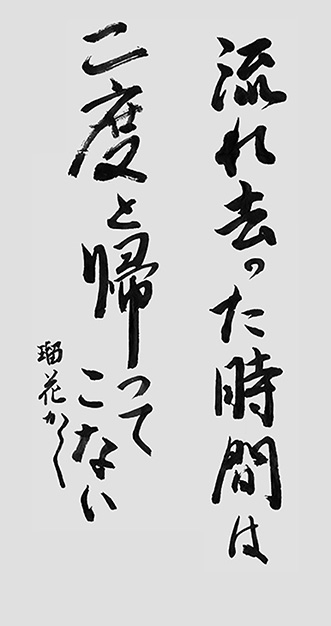 流れ去った時間は
二度と帰ってこない
瑠花かく